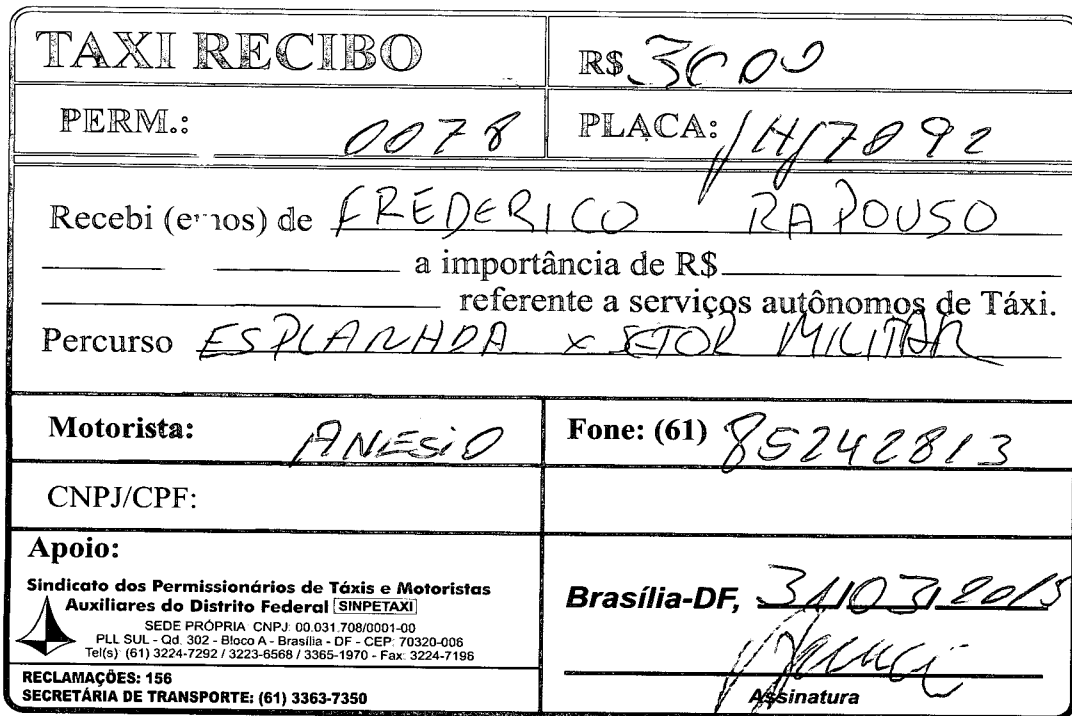 TAXI RECIBO
R$ 3000
PERM.: 0078
PLACA: JHJ7892
Recebi (emos) de FREDERICO RAPOUSO
a importância de R$
referente a serviços autônomos de Táxi.
Percurso ESPLANADA x SETOR MILITAR
Motorista: ANESIO
Fone: (61) 85242813
CNPJ/CPF:
Apoio:
Sindicato dos Permissionários de Táxis e Motoristas
Auxiliares do Distrito Federal SINPETAXI
SEDE PRÓPRIA CNPJ: 00.031.708/0001-00
PLL SUL - Qd. 302 - Bloco A - Brasília - DF - CEP: 70320-006
Tel(s): (61) 3224-7292 / 3223-6568 / 3365-1970 - Fax: 3224-7196
RECLAMAÇÕES: 156
SECRETÁRIA DE TRANSPORTE: (61) 3363-7350
Brasília-DF, 31/03/2015
Assinatura